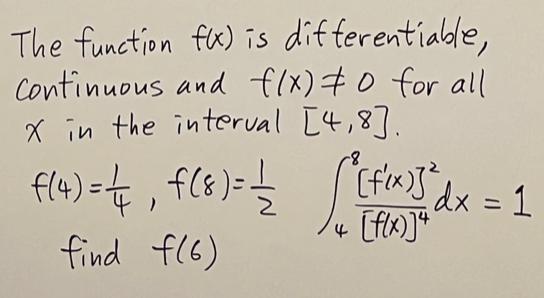 The function f(x) is differentiable,
continuous and f(x) ≠ 0 for all
x in the interval [4,8].
f(4)=1/4, f(8)=1/2 ∫₄⁸ [f'(x)]²/[f(x)]⁴ dx = 1
find f(6)